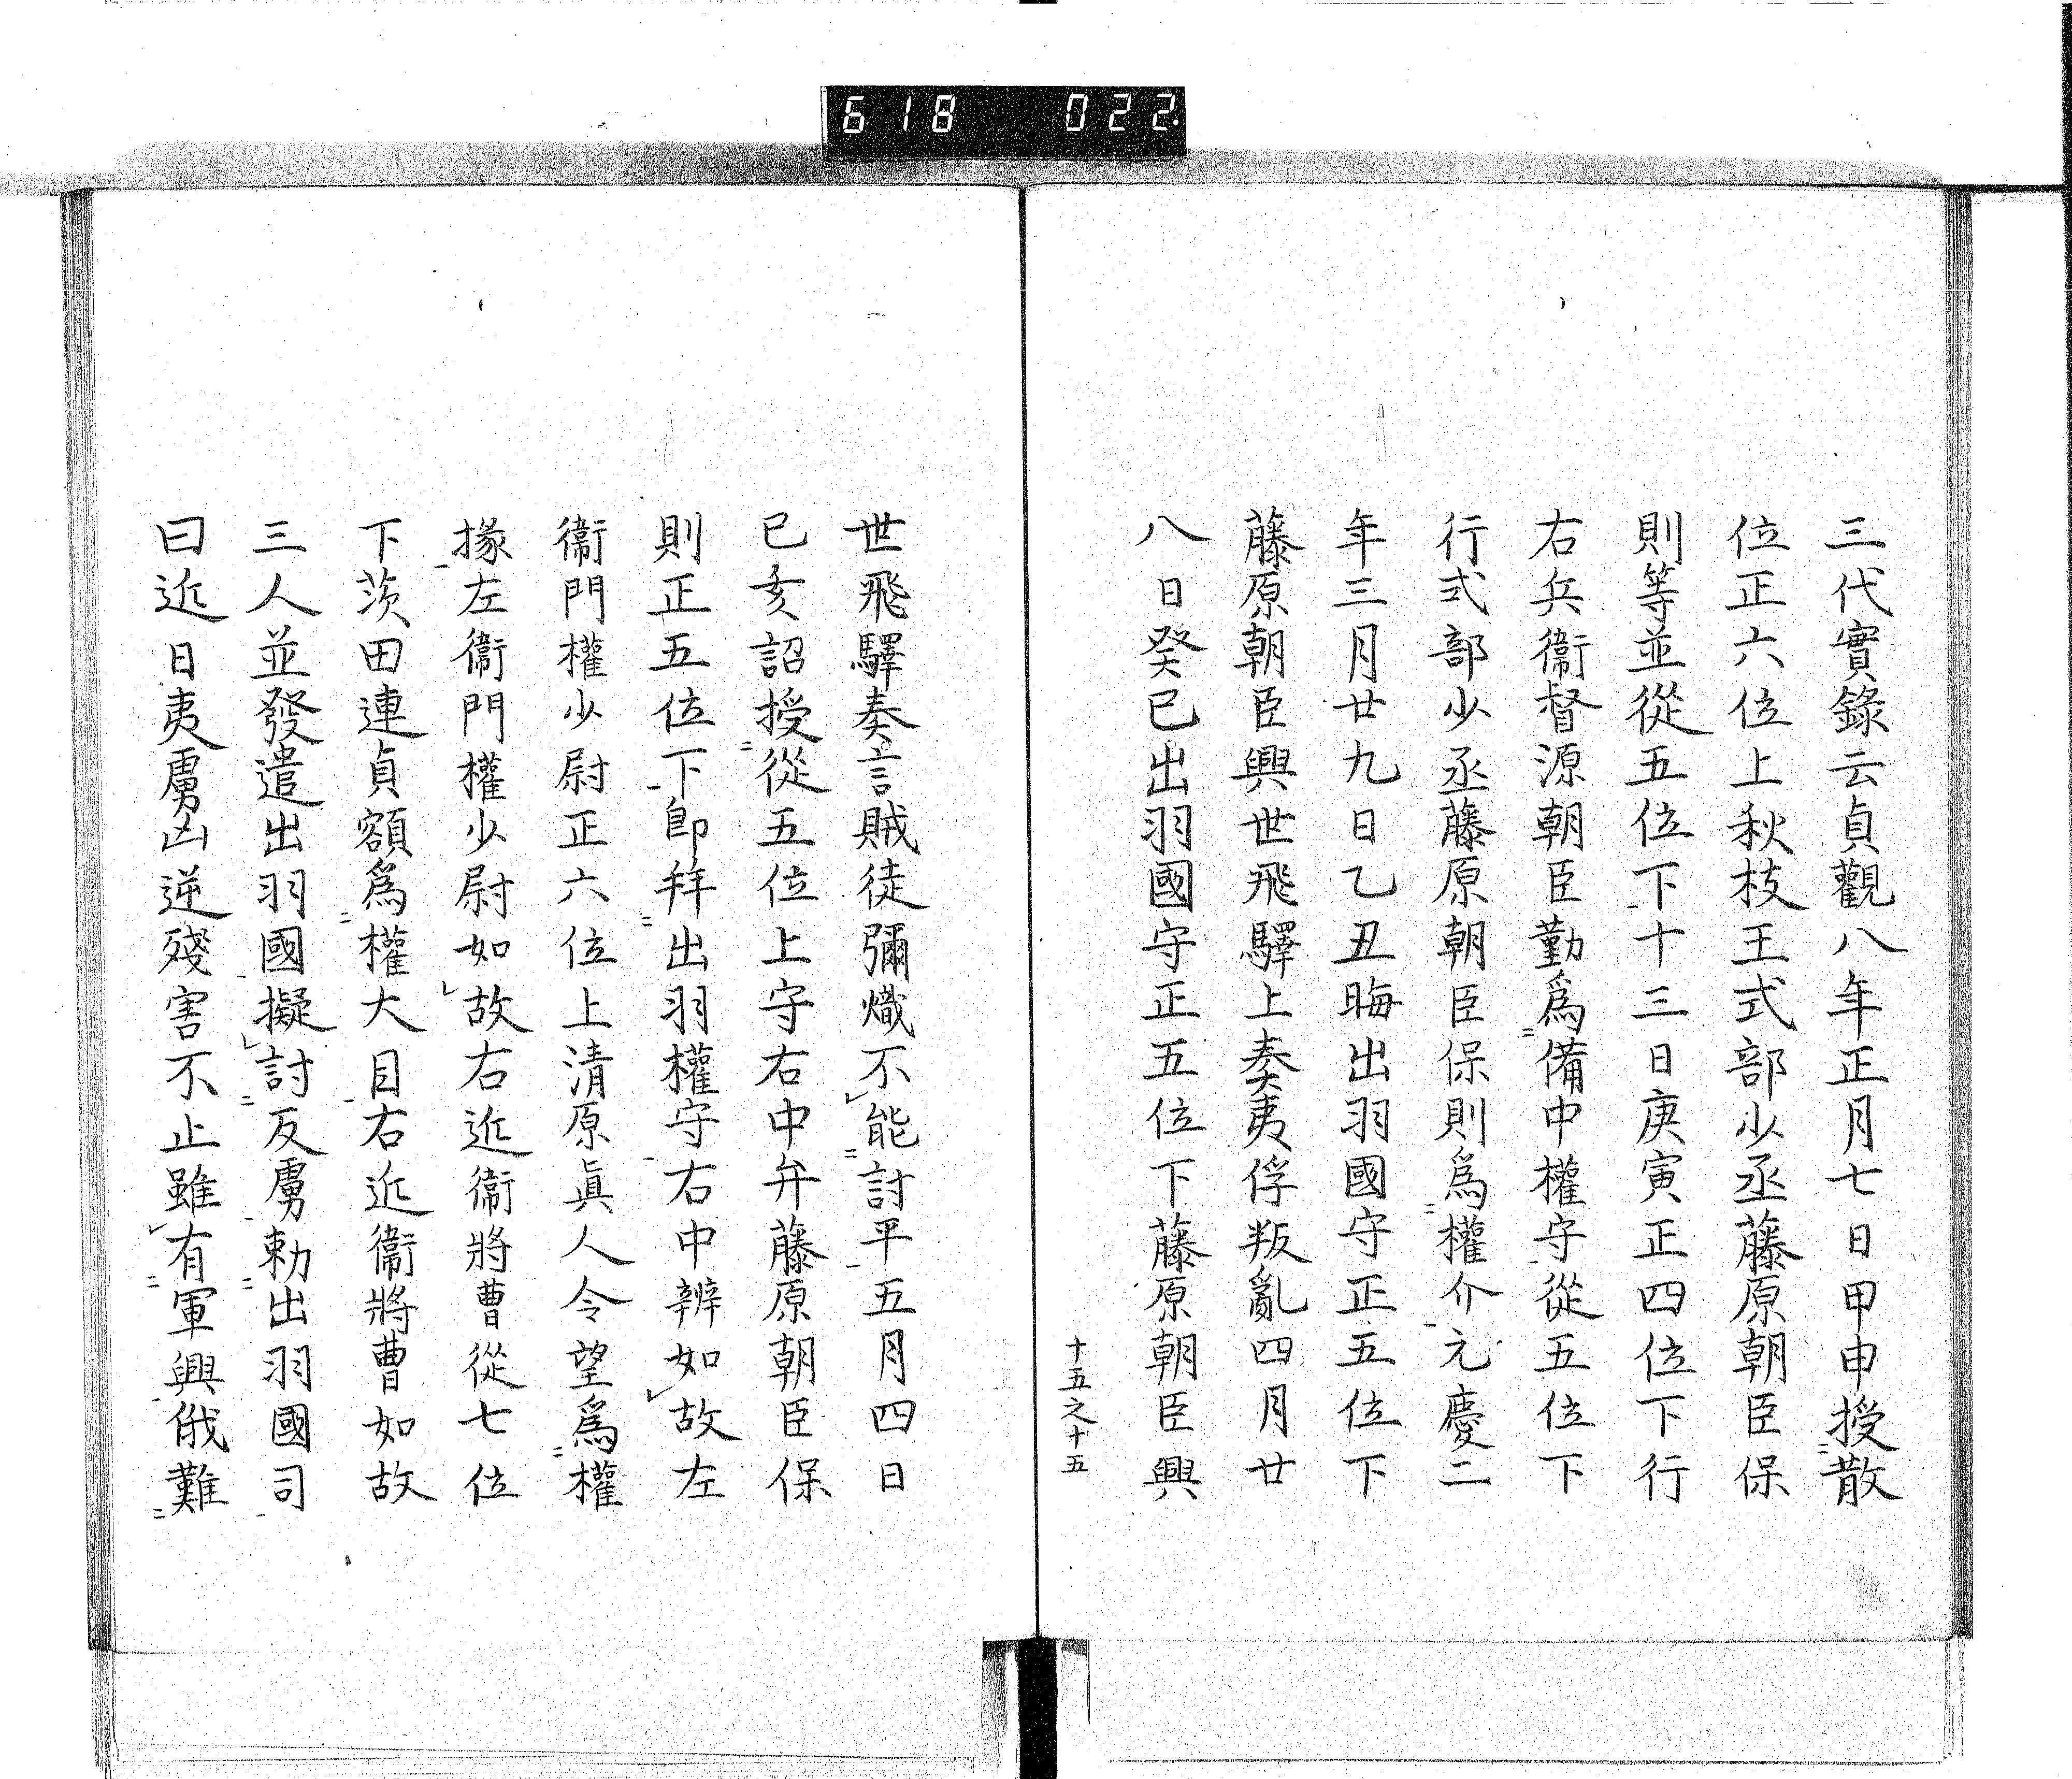 618 022
三代實錄云貞觀八年正月七日甲申授散
位正六位上秋枝王式部少丞藤原朝臣保
則等並從五位下十三日庚寅正四位下行
右兵衞督源朝臣勤爲備中權守從五位下
行式部少丞藤原朝臣保則爲權介元慶二
年三月廿九日乙丑晦出羽國守正五位下
藤原朝臣興世飛驛上奏夷俘叛亂四月廿
八日癸巳出羽國守正五位下藤原朝臣興
十五之十五
世飛驛奏言賊徒彌熾不能討平五月四日
己亥詔授從五位上守右中弁藤原朝臣保
則正五位下卽拜出羽權守右中辨如故左
衞門權少尉正六位上清原眞人令望爲權
掾左衞門權少尉如故右近衞將曹從七位
下茨田連貞額爲權大目右近衞將曹如故
三人並發遣出羽國擬討反虜勅出羽國司
曰近日夷虜凶逆殘害不止雖有軍興俄難